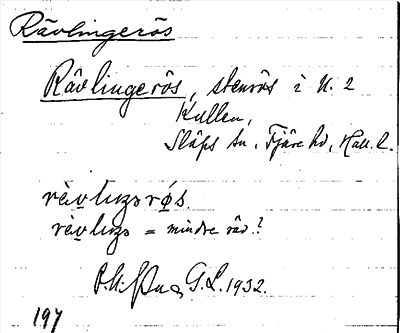 Rävlingerös
Rävlingerös, stenrös i N. 2
Kullen,
Släps sn, Fjäre hd, Hall. l.
rɛ̀vlɩŋərǿs.
rɛ̀vlɩŋə = mindre räv?
G.L. 1932.
197